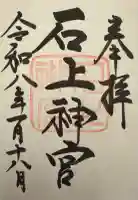 奉拝
石上神宮
令和八年一月十八日